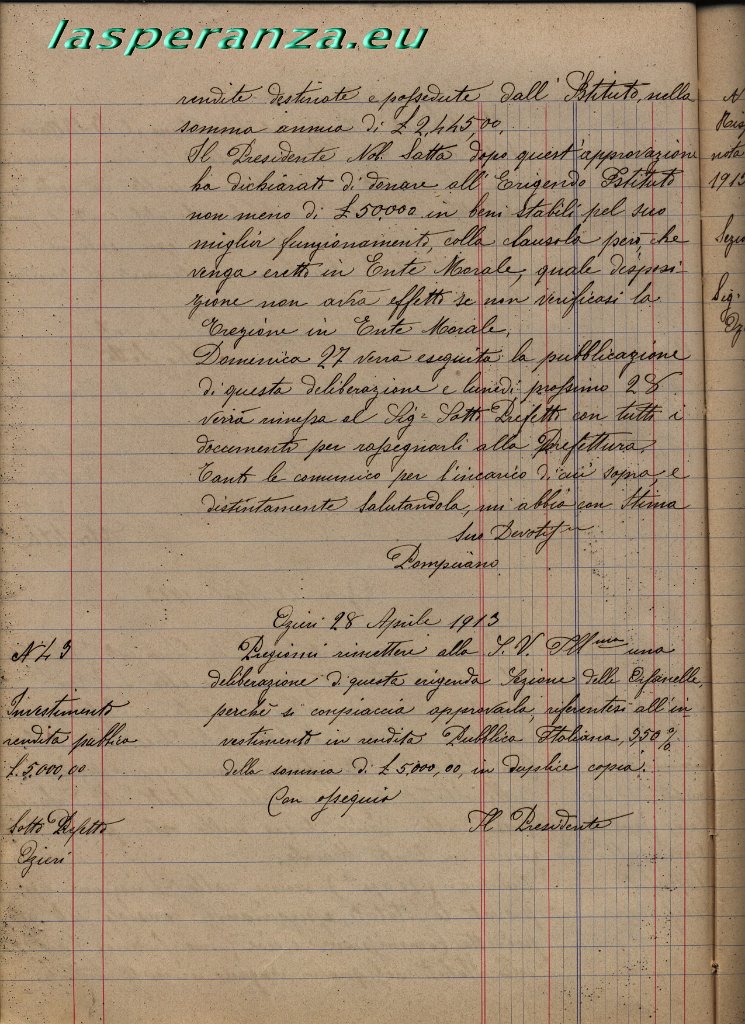 lasperanza.eu
rendite destinate e possedute dall' Istituto, nella
somma annua di £ 2,445,00.
Il Presidente Nob. Satta dopo quest'approvazione
ha dichiarato di donare all' Erigendo Istituto
non meno di £ 50,000 in beni stabili pel suo
miglior funzionamento, colla clausola però che
venga eretto in Ente Morale, quale disposi
zione non avrà effetto se non verificasi la
Erezione in Ente Morale.
Domenica 27 verrà eseguita la pubblicazione
di questa deliberazione e lunedì prossimo 28
verrà rimessa al Sig= Sotto Prefetto con tutti i
documenti per rassegnarli alla Prefettura.
Tanto le comunico per l'incarico di cui sopra, e
distintamente salutandola, mi abbia con stima
Suo Devotis
Pompeiano
Ozieri 28 Aprile 1913
N 43
Pregiomi rimettere alla S. V. Ill una
deliberazione di questa erigenda Sezione delle Orfanelle,
perchè si compiaccia approvarla, riferentesi all'in
Investimento
rendita pubblica
£ 5,000,00
vestimento in rendita Pubblica Italiana, 3,50 %
della somma di £ 5,000,00, in duplice copia.
Con ossequio
Il Presidente
Sotto Prefetto
Ozieri
N
nota
1913
Sezio
Sig=
Oz